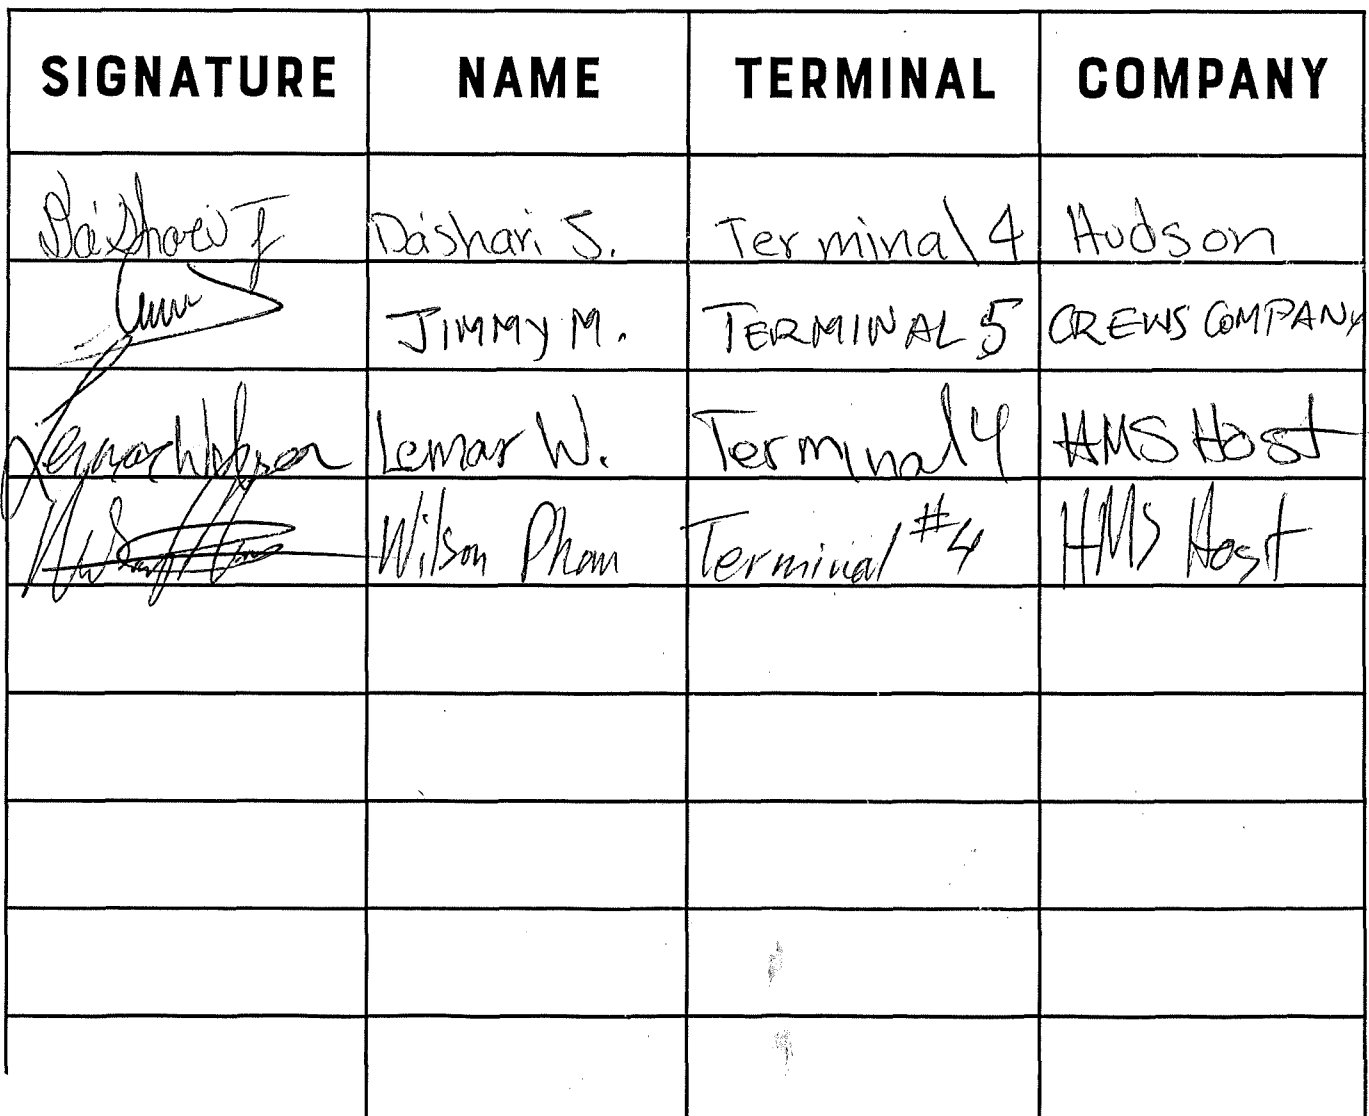 SIGNATURE NAME TERMINAL COMPANY
Da'Shari S. Terminal 4 Hudson
JIMMY M. TERMINAL 5 CREWS COMPANY
Lemar W. Terminal 4 HMS Host
Wilson Pham Terminal #4 HMS Host